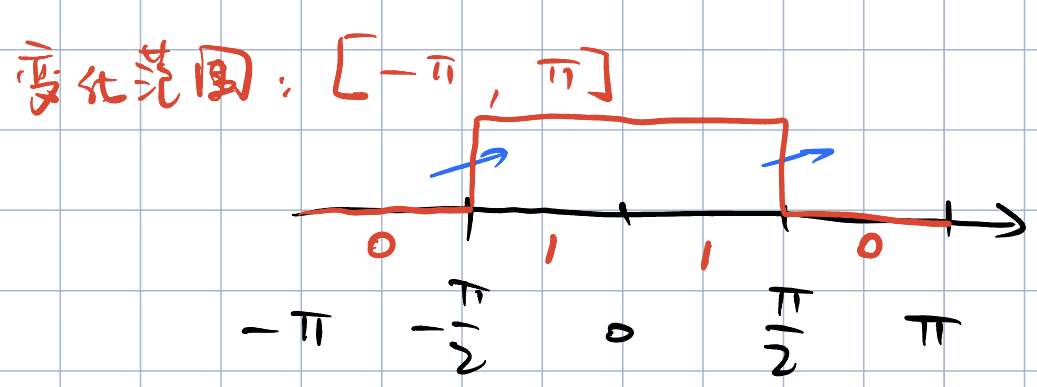 变化范围：[-π, π]
0 1 1 0
-π -π/2 0 π/2 π